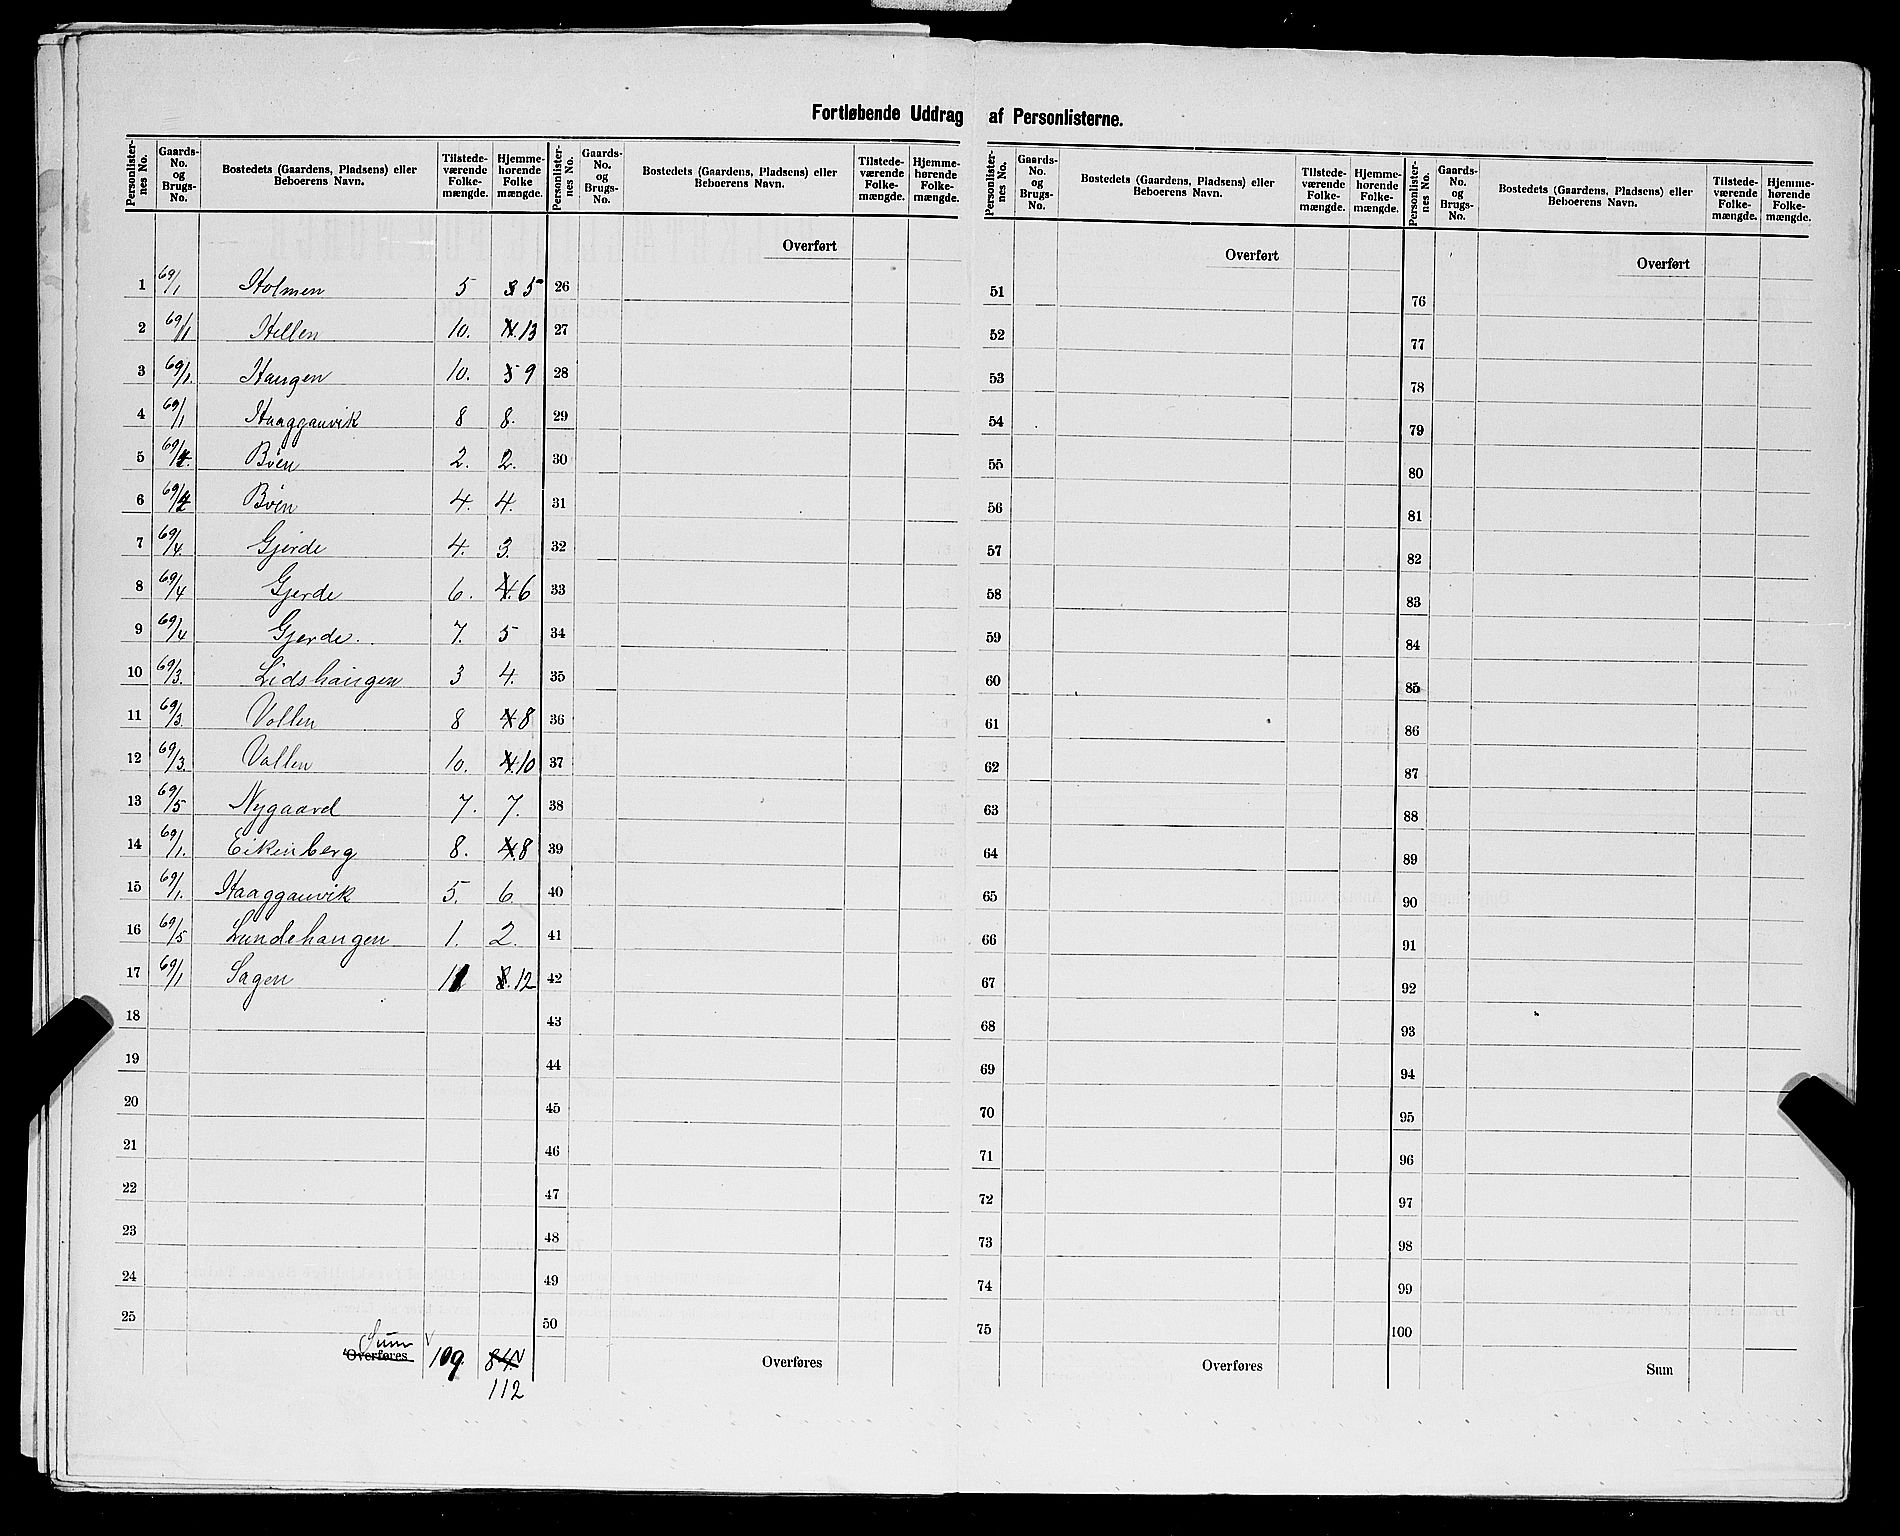 Fortløbende Uddrag af Personlisterne.
Personlisternes No. | Gaards-No. og Brugs-No. | Bostedets (Gaardens, Pladsens) eller Beboerens Navn. | Tilstedeværende Folkemængde. | Hjemmehørende Folkemængde.
1 69/1 Holmen 5 3 5
2 69/1 Hellen 10. 4. 13
3 69/1. Haugen 10. 5 9
4 69/1 Haaggauvik 8 8.
5 69/4. Böen 2. 2.
6 69/4 Böen 4. 4.
7 69/4. Gjerde 4. 3.
8 69/4 Gjerde 6. 4. 6
9 69/4 Gjerde. 7. 5
10 69/3. Lidshaugen 3 4.
11 69/3. Vollen 8 4 8
12 69/3. Vollen 10. 4. 10
13 69/5 Nygaard 7. 7.
14 69/1. Eikenberg 8. 4. 8
15 69/1. Haaggauvik 5. 6.
16 69/5 Lundehaugen 1. 2.
17 69/1 Sagen 11 8. 12
18
19
20
21
22
23
24
25
Sum
Overføres 109. 84.
112
Personlisternes No. | Gaards-No. og Brugs-No. | Bostedets (Gaardens, Pladsens) eller Beboerens Navn. | Tilstedeværende Folkemængde. | Hjemmehørende Folkemængde.
Overført
26
27
28
29
30
31
32
33
34
35
36
37
38
39
40
41
42
43
44
45
46
47
48
49
50
Overføres
Personlisternes No. | Gaards-No. og Brugs-No. | Bostedets (Gaardens, Pladsens) eller Beboerens Navn. | Tilstedeværende Folkemængde. | Hjemmehørende Folkemængde.
Overført
51
52
53
54
55
56
57
58
59
60
61
62
63
64
65
66
67
68
69
70
71
72
73
74
75
Overføres
Personlisternes No. | Gaards-No. og Brugs-No. | Bostedets (Gaardens, Pladsens) eller Beboerens Navn. | Tilstedeværende Folkemængde. | Hjemmehørende Folkemængde.
Overført
76
77
78
79
80
81
82
83
84
85
86
87
88
89
90
91
92
93
94
95
96
97
98
99
100
Sum